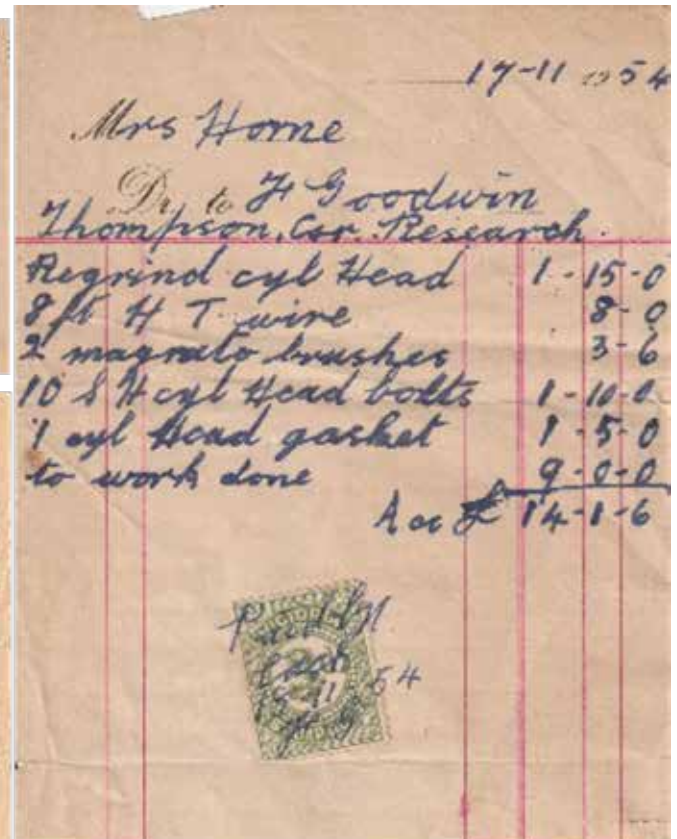 17-11 1954
Mrs Horne
Dr. to F Goodwin
Thompson, Car. Research.
Regrind cyl Head 1-15-0
8 ft H T wire 8-0
2 magneto brushes 3-6
10 S H cyl Head bolts 1-10-0
1 cyl Head gasket 1-5-0
to work done 9-0-0
£ 14-1-6
Paid
Cash
11 54